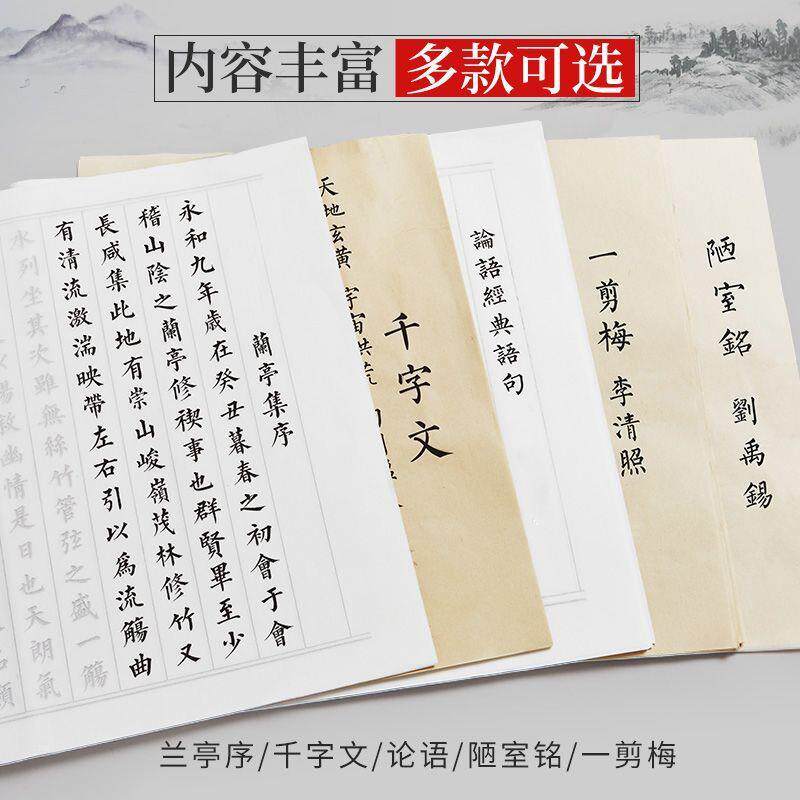 内容丰富 多款可选
蘭亭集序
永和九年歲在癸丑暮春之初會于會
稽山陰之蘭亭修稧事也群賢畢至少
長咸集此地有崇山峻嶺茂林修竹又
有清流激湍映帶左右引以爲流觴曲
水列坐其次雖無絲竹管弦之盛一觴
暢敘幽情是日也天朗氣
千字文
天地玄黃 宇宙洪荒
論語經典語句
一剪梅 李清照
陋室銘 劉禹錫
兰亭序/千字文/论语/陋室铭/一剪梅